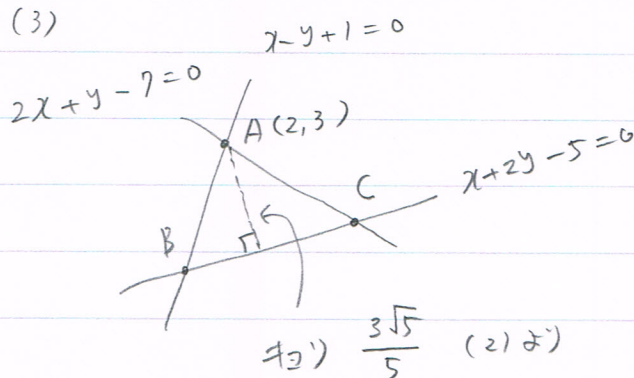 (3)
x-y+1=0
2x+y-7=0
A(2,3)
x+2y-5=0
C
B
キョリ 3√5/5 (2)より